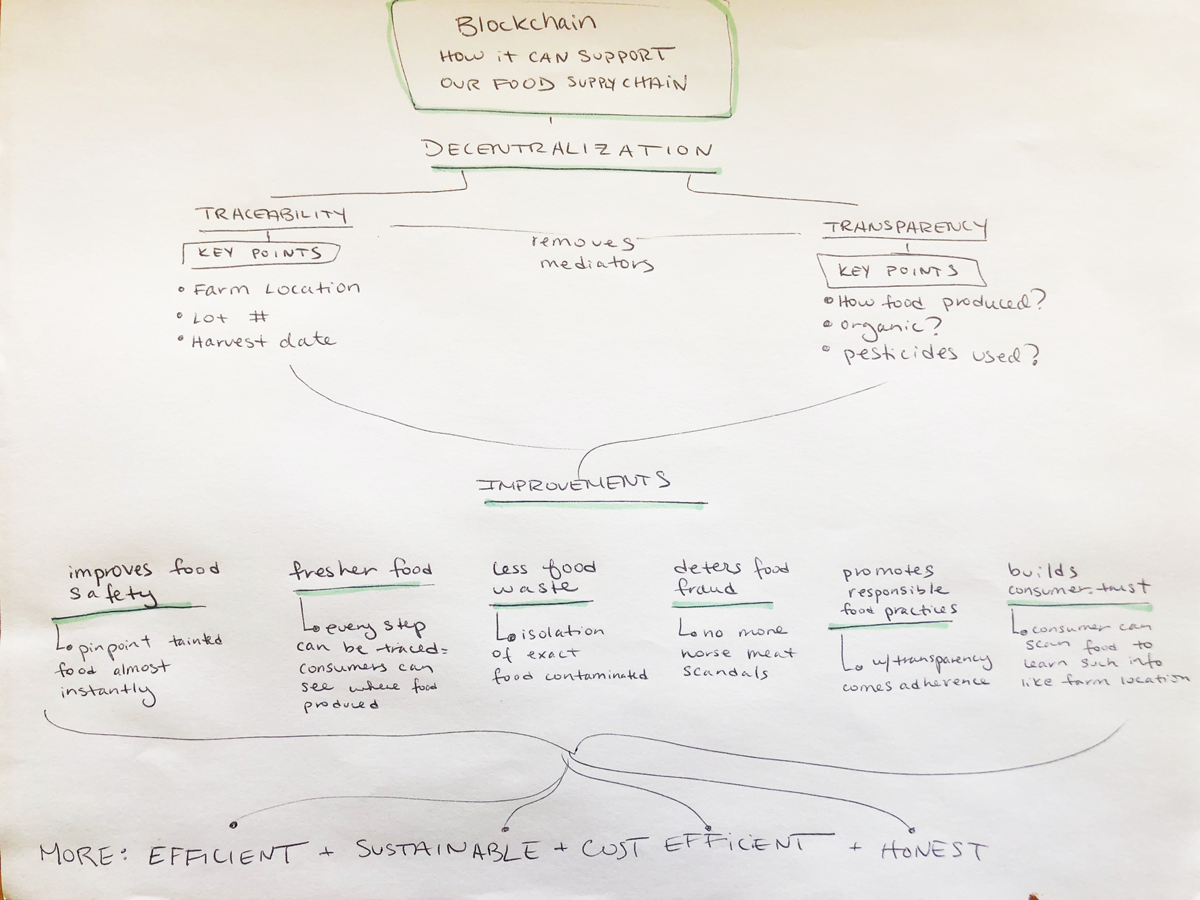 Blockchain
HOW it CAN SUPPORT
OUR FOOD SUPPLY CHAIN
DECENTRALIZATION
TRACEABILITY
KEY POINTS
• Farm Location
• Lot #
• Harvest date
removes
mediators
TRANSPARENCY
KEY POINTS
• How food produced?
• organic?
• pesticides used?
IMPROVEMENTS
improves food
safety
pinpoint tainted
food almost
instantly
fresher food
every step
can be traced=
consumers can
see where food
produced
less food
waste
isolation
of exact
food contaminated
deters food
fraud
no more
horse meat
scandals
promotes
responsible
food practices
w/transparency
comes adherence
builds
consumer trust
consumer can
scan food to
learn such info
like farm location
MORE: EFFICIENT + SUSTAINABLE + COST EFFICIENT + HONEST